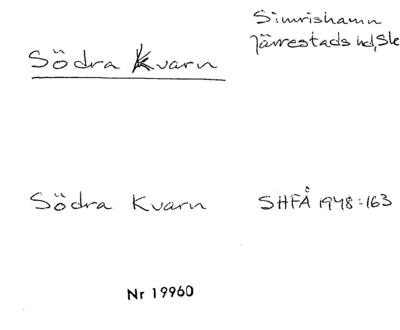 Simrishamn
Järrestads hd, Sk
Södra Kvarn
Södra Kvarn SHFÅ 1948:163
Nr 19960